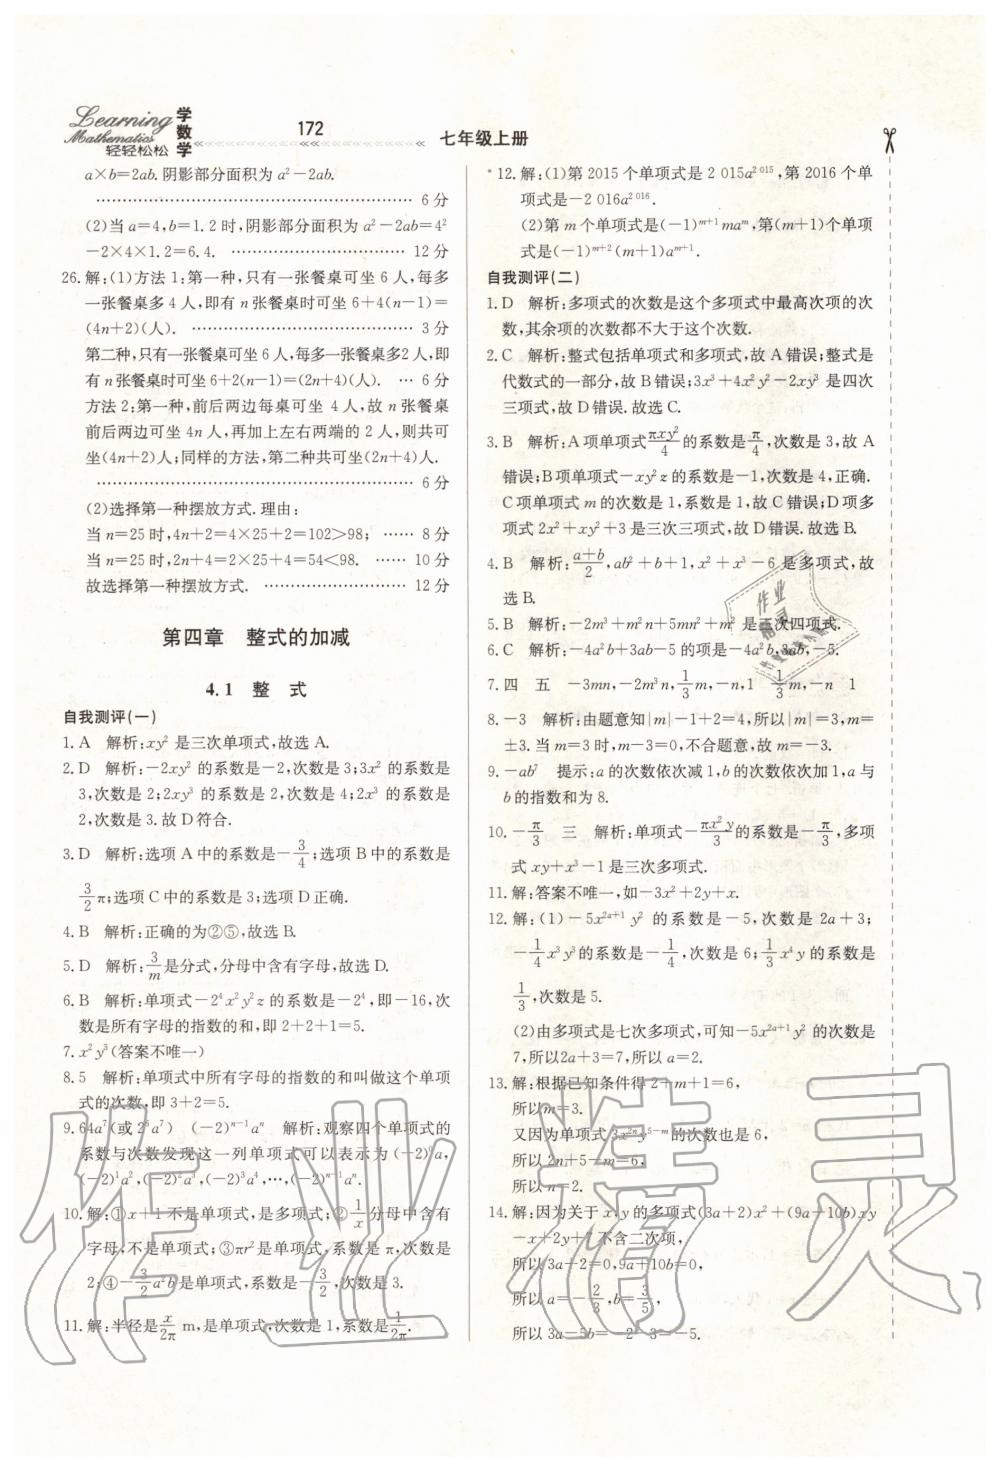 Learning
Mathematics
轻轻松松
学数学
172
七年级上册
a×b=2ab.阴影部分面积为 a²-2ab.
………………………………………… 6 分
(2)当 a=4,b=1.2 时,阴影部分面积为 a²-2ab=4²
-2×4×1.2=6.4. …………………… 12 分
26.解:(1)方法 1:第一种,只有一张餐桌可坐 6 人,每多
一张餐桌多 4 人,即有 n 张餐桌时可坐 6+4(n-1)=
(4n+2)(人). ……………………………… 3 分
第二种,只有一张餐桌可坐 6 人,每多一张餐桌多2 人,即
有 n 张餐桌时可坐 6+2(n-1)=(2n+4)(人). … 6 分
方法 2:第一种,前后两边每桌可坐 4 人,故 n 张餐桌
前后两边可坐 4n 人,再加上左右两端的 2 人,则共可
坐(4n+2)人;同样的方法,第二种共可坐(2n+4)人.
………………………………………… 6 分
(2)选择第一种摆放方式.理由:
当 n=25 时,4n+2=4×25+2=102>98; …… 8 分
当 n=25 时,2n+4=2×25+4=54<98. …… 10 分
故选择第一种摆放方式. ………………… 12 分
第四章 整式的加减
4.1 整 式
自我测评(一)
1.A 解析:xy² 是三次单项式,故选 A.
2.D 解析:-2xy² 的系数是-2,次数是 3;3x² 的系数是
3,次数是 2;2xy³ 的系数是 2,次数是 4;2x³ 的系数是
2,次数是 3.故 D 符合.
3.D 解析:选项 A 中的系数是-3/4;选项 B 中的系数是
3/2 π;选项 C 中的系数是 3;选项 D 正确.
4.B 解析:正确的为②⑤,故选 B.
5.D 解析:3/m是分式,分母中含有字母,故选 D.
6.B 解析:单项式-2⁴x²y²z 的系数是-2⁴,即-16,次
数是所有字母的指数的和,即 2+2+1=5.
7.x²y³(答案不唯一)
8.5 解析:单项式中所有字母的指数的和叫做这个单项
式的次数,即 3+2=5.
9.64a⁷(或 2⁶a⁷) (-2)ⁿ⁻¹aⁿ 解析:观察四个单项式的
系数与次数发现这一列单项式可以表示为(-2)⁰a,
(-2)¹a²,(-2)²a³,(-2)³a⁴,…,(-2)ⁿ⁻¹aⁿ.
10.解:①x+1 不是单项式,是多项式;②1/x分母中含有
字母,不是单项式;③πr² 是单项式,系数是 π,次数是
2;④-3/2 a²b 是单项式,系数是-3/2,次数是 3.
11.解:半径是x/2π m,是单项式,次数是 1,系数是1/2π.
12.解:(1)第 2015 个单项式是 2 015a²⁰¹⁵,第 2016 个单
项式是-2 016a²⁰¹⁶.
(2)第 m 个单项式是(-1)ᵐ⁺¹maᵐ,第(m+1)个单项
式是(-1)ᵐ⁺²(m+1)aᵐ⁺¹.
自我测评(二)
1.D 解析:多项式的次数是这个多项式中最高次项的次
数,其余项的次数都不大于这个次数.
2.C 解析:整式包括单项式和多项式,故 A 错误;整式是
代数式的一部分,故 B 错误;3x³+4x²y²-2xy³ 是四次
三项式,故 D 错误.故选 C.
3.B 解析:A 项单项式πxy²/4的系数是π/4,次数是 3,故 A
错误;B 项单项式-xy²z 的系数是-1,次数是 4,正确.
C 项单项式 m 的次数是 1,系数是 1,故 C 错误;D 项多
项式 2x²+xy²+3 是三次三项式,故 D 错误.故选 B.
4.B 解析:a+b/2,ab²+b+1,x²+x³-6 是多项式,故
选 B.
5.B 解析:-2m³+m²n+5mn²+m² 是三次四项式.
6.C 解析:-4a²b+3ab-5 的项是-4a²b,3ab,-5.
7.四 五 -3mn,-2m³n,1/3 m,-n,1 1/3 m,-n 1
8.-3 解析:由题意知|m|-1+2=4,所以|m|=3,m=
±3.当 m=3 时,m-3=0,不合题意,故 m=-3.
9.-ab⁷ 提示:a 的次数依次减 1,b 的次数依次加 1,a 与
b 的指数和为 8.
10.-π/3 三 解析:单项式-πx²y/3的系数是-π/3,多项
式 xy+x³-1 是三次多项式.
11.解:答案不唯一,如-3x²+2y+x.
12.解:(1)-5x²ᵃ⁺¹y² 的系数是-5,次数是 2a+3;
-1/4 x³y³的系数是-1/4,次数是 6;1/3 x⁴y 的系数是
1/3,次数是 5.
(2)由多项式是七次多项式,可知-5x²ᵃ⁺¹y² 的次数是
7,所以2a+3=7,所以 a=2.
13.解:根据已知条件得 2+m+1=6,
所以m=3.
又因为单项式 3x²ⁿy⁵⁻ᵐ的次数也是 6,
所以 2n+5-m=6,
所以 n=2.
14.解:因为关于 x,y 的多项式(3a+2)x²+(9a+10b)xy
-x+2y+1 不含二次项,
所以 3a+2=0,9a+10b=0,
所以 a=-2/3,b=3/5,
所以 3a-5b=-2-3=-5.
作业精灵
作业精灵